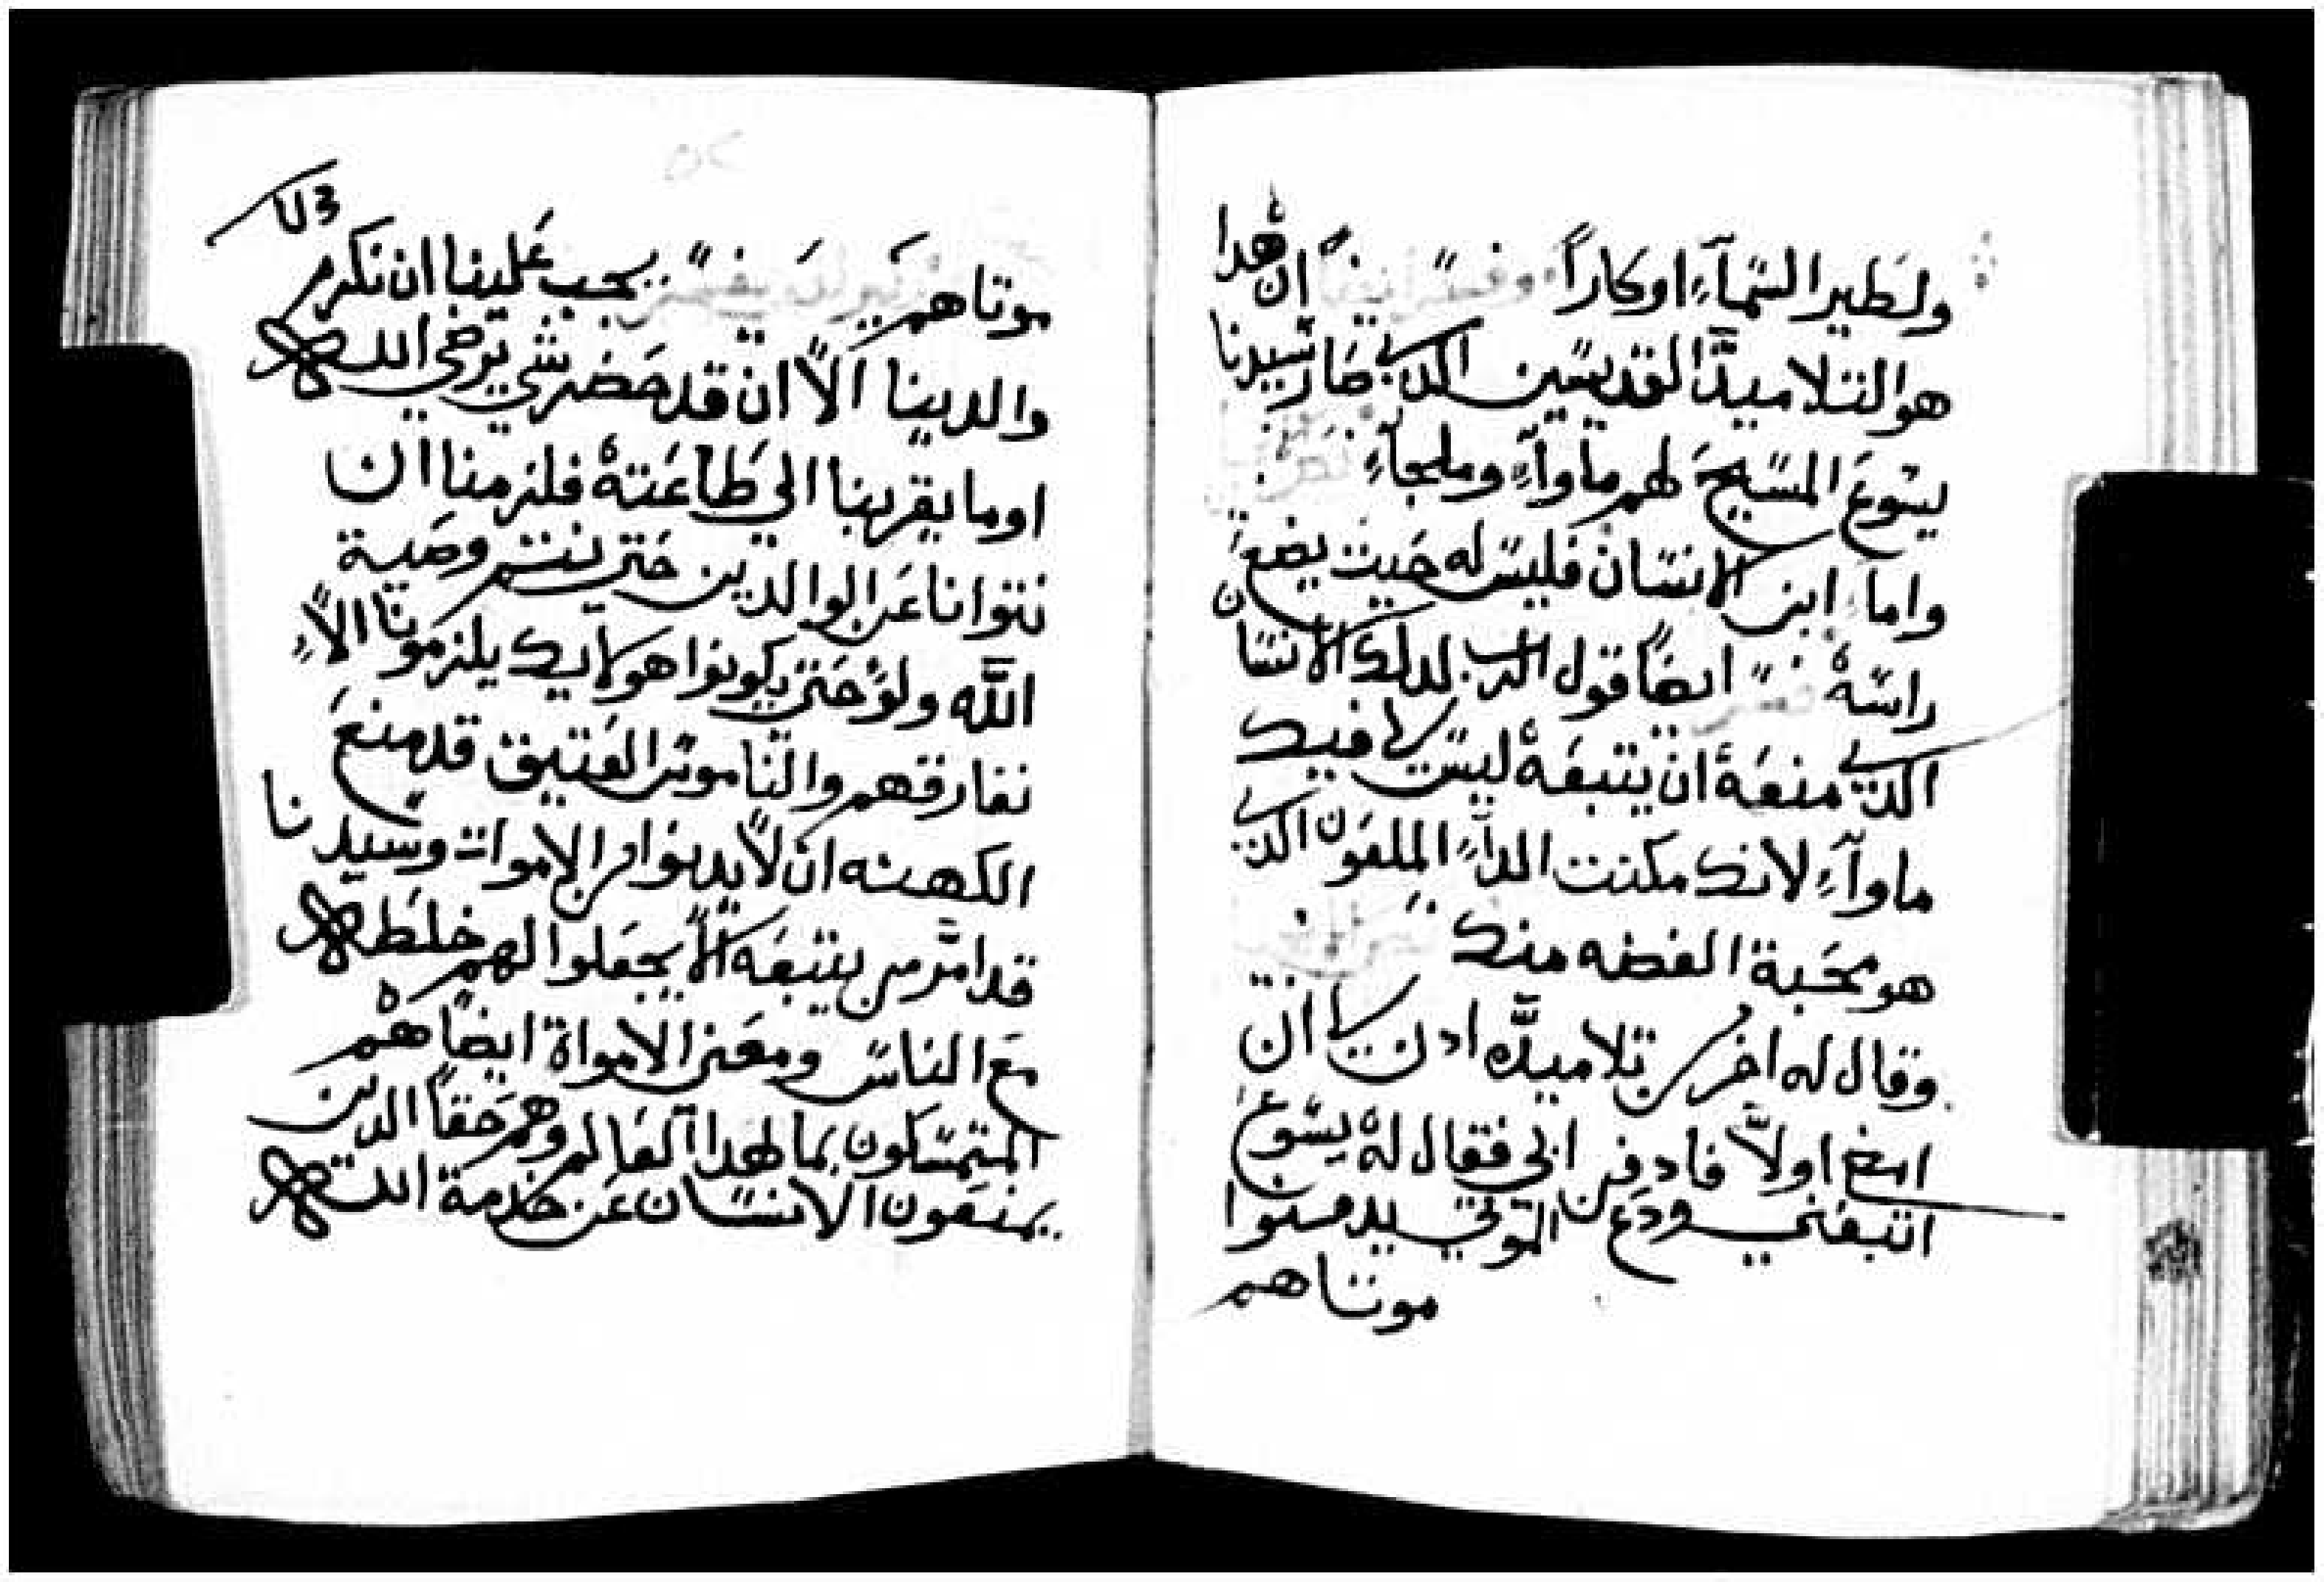 ولطير السمآءِ اوكاراً ان هدا
هو التلاميد القديسين الدي صار سيدنا
يسوع المسيح لهم ماوآءِ وملجاءِ
واما ابن الانسان فليس له حيث يضع
راسه ايضاً قول الرب لدلك الانسان
الدي منعه ان يتبعه ليس لي فيك
ماوآءِ لانك مكنت الدآءِ الملعون الدي
هو محبة الفضه منك
وقال له اخر من تلاميده ادن لي ان
امضي اولاً فادفن ابي فقال له يسوع
اتبعني ودع الموتي يدفنوا
موتاهم
موتاهم يجب علينا ان نكرم
والدينا الاّ ان قد حضر شي يرضي الله
او ما يقربنا الي طاعته فلزمنا ان
نتوانا عن الوالدين حتي نتم وصية
الله ولو حتي يكونوا هولايك يلزمونا الاّ
نفارقهم والناموس العتيق قد منع
الكهنه ان لا يدنوا من الاموات وسيدنا
قد امر من يتبعه الا يجعلوا لهم خلطه
مع الناس ومعني الامواة ايضاً هم
المتمسكون بما لهدا العالم وهم حقاً الدين
يمنعون الانسان عن خدمة الله